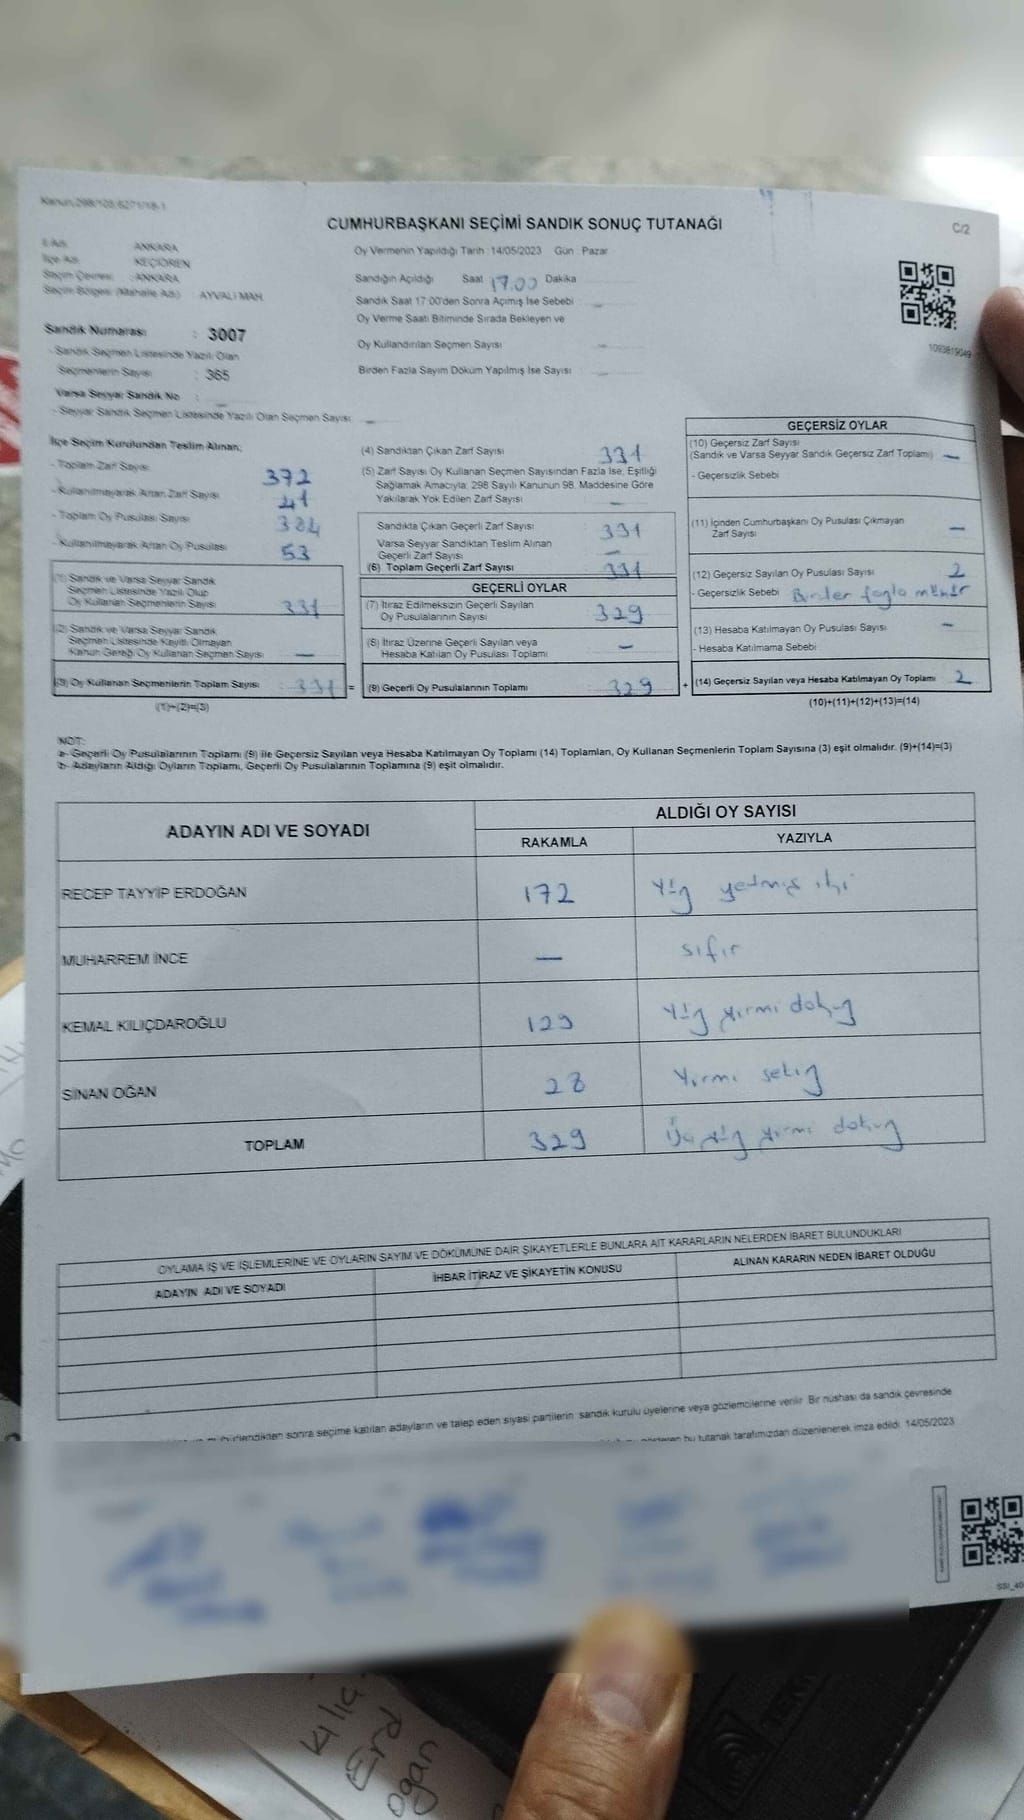 Kanun:298/105,6271/18-1
CUMHURBAŞKANI SEÇİMİ SANDIK SONUÇ TUTANAĞI
C/2
İl Adı : ANKARA
İlçe Adı : KEÇİÖREN
Seçim Çevresi : ANKARA
Seçim Bölgesi (Mahalle Adı) : AYVALI MAH.
Oy Vermenin Yapıldığı Tarih : 14/05/2023 Gün : Pazar
Sandığın Açıldığı Saat 17.00 Dakika
Sandık Saat 17:00'den Sonra Açımış İse Sebebi :
Oy Verme Saati Bitiminde Sırada Bekleyen ve
Oy Kullandırılan Seçmen Sayısı :
Birden Fazla Sayım Döküm Yapılmış İse Sayısı :
1093819049
Sandık Numarası : 3007
- Sandık Seçmen Listesinde Yazılı Olan
Seçmenlerin Sayısı : 365
Varsa Seyyar Sandık No :
- Seyyar Sandık Seçmen Listesinde Yazılı Olan Seçmen Sayısı :
İlçe Seçim Kurulundan Teslim Alınan;
- Toplam Zarf Sayısı 372
- Kullanılmayarak Artan Zarf Sayısı 41
- Toplam Oy Pusulası Sayısı 384
- Kullanılmayarak Artan Oy Pusulası 53
(1) Sandık ve Varsa Seyyar Sandık
Seçmen Listesinde Yazılı Olup
Oy Kullanan Seçmenlerin Sayısı : 331
(2) Sandık ve Varsa Seyyar Sandık
Seçmen Listesinde Kayıtlı Olmayan
Kanun Gereği Oy Kullanan Seçmen Sayısı : —
(3) Oy Kullanan Seçmenlerin Toplam Sayısı : 331 =
(1)+(2)=(3)
(4) Sandıktan Çıkan Zarf Sayısı 331
(5) Zarf Sayısı Oy Kullanan Seçmen Sayısından Fazla İse, Eşitliği
Sağlamak Amacıyla; 298 Sayılı Kanunun 98. Maddesine Göre
Yakılarak Yok Edilen Zarf Sayısı : —
Sandıkta Çıkan Geçerli Zarf Sayısı : 331
Varsa Seyyar Sandıktan Teslim Alınan
Geçerli Zarf Sayısı : —
(6) Toplam Geçerli Zarf Sayısı : 331
GEÇERLİ OYLAR
(7) İtiraz Edilmeksizin Geçerli Sayılan
Oy Pusulalarının Sayısı : 329
(8) İtiraz Üzerine Geçerli Sayılan veya
Hesaba Katılan Oy Pusulası Toplamı : —
(9) Geçerli Oy Pusulalarının Toplamı : 329 +
GEÇERSİZ OYLAR
(10) Geçersiz Zarf Sayısı
(Sandık ve Varsa Seyyar Sandık Geçersiz Zarf Toplamı) : —
- Geçersizlik Sebebi
(11) İçinden Cumhurbaşkanı Oy Pusulası Çıkmayan
Zarf Sayısı : —
(12) Geçersiz Sayılan Oy Pusulası Sayısı : 2
- Geçersizlik Sebebi Birden fazla mühür
(13) Hesaba Katılmayan Oy Pusulası Sayısı : —
- Hesaba Katılmama Sebebi
(14) Geçersiz Sayılan veya Hesaba Katılmayan Oy Toplamı : 2
(10)+(11)+(12)+(13)=(14)
NOT:
a- Geçerli Oy Pusulalarının Toplamı (9) ile Geçersiz Sayılan veya Hesaba Katılmayan Oy Toplamı (14) Toplamları, Oy Kullanan Seçmenlerin Toplam Sayısına (3) eşit olmalıdır. (9)+(14)=(3)
b- Adayların Aldığı Oyların Toplamı, Geçerli Oy Pusulalarının Toplamına (9) eşit olmalıdır.
ADAYIN ADI VE SOYADI ALDIĞI OY SAYISI
RAKAMLA YAZIYLA
RECEP TAYYİP ERDOĞAN 172 Yüz yetmiş iki
MUHARREM İNCE — sıfır
KEMAL KILIÇDAROĞLU 129 Yüz yirmi dokuz
SİNAN OĞAN 28 Yirmi sekiz
TOPLAM 329 Üç yüz yirmi dokuz
OYLAMA İŞ VE İŞLEMLERİNE VE OYLARIN SAYIM VE DÖKÜMÜNE DAİR ŞİKAYETLERLE BUNLARA AİT KARARLARIN NELERDEN İBARET BULUNDUKLARI
ADAYIN ADI VE SOYADI İHBAR İTİRAZ VE ŞİKAYETİN KONUSU ALINAN KARARIN NEDEN İBARET OLDUĞU
mühürlendikten sonra seçime katılan adayların ve talep eden siyasi partilerin sandık kurulu üyelerine veya gözlemcilerine verilir. Bir nüshası da sandık çevresinde
bu tutanak tarafımızdan düzenlenerek imza edildi. 14/05/2023
Kılıç
Erd
ogan